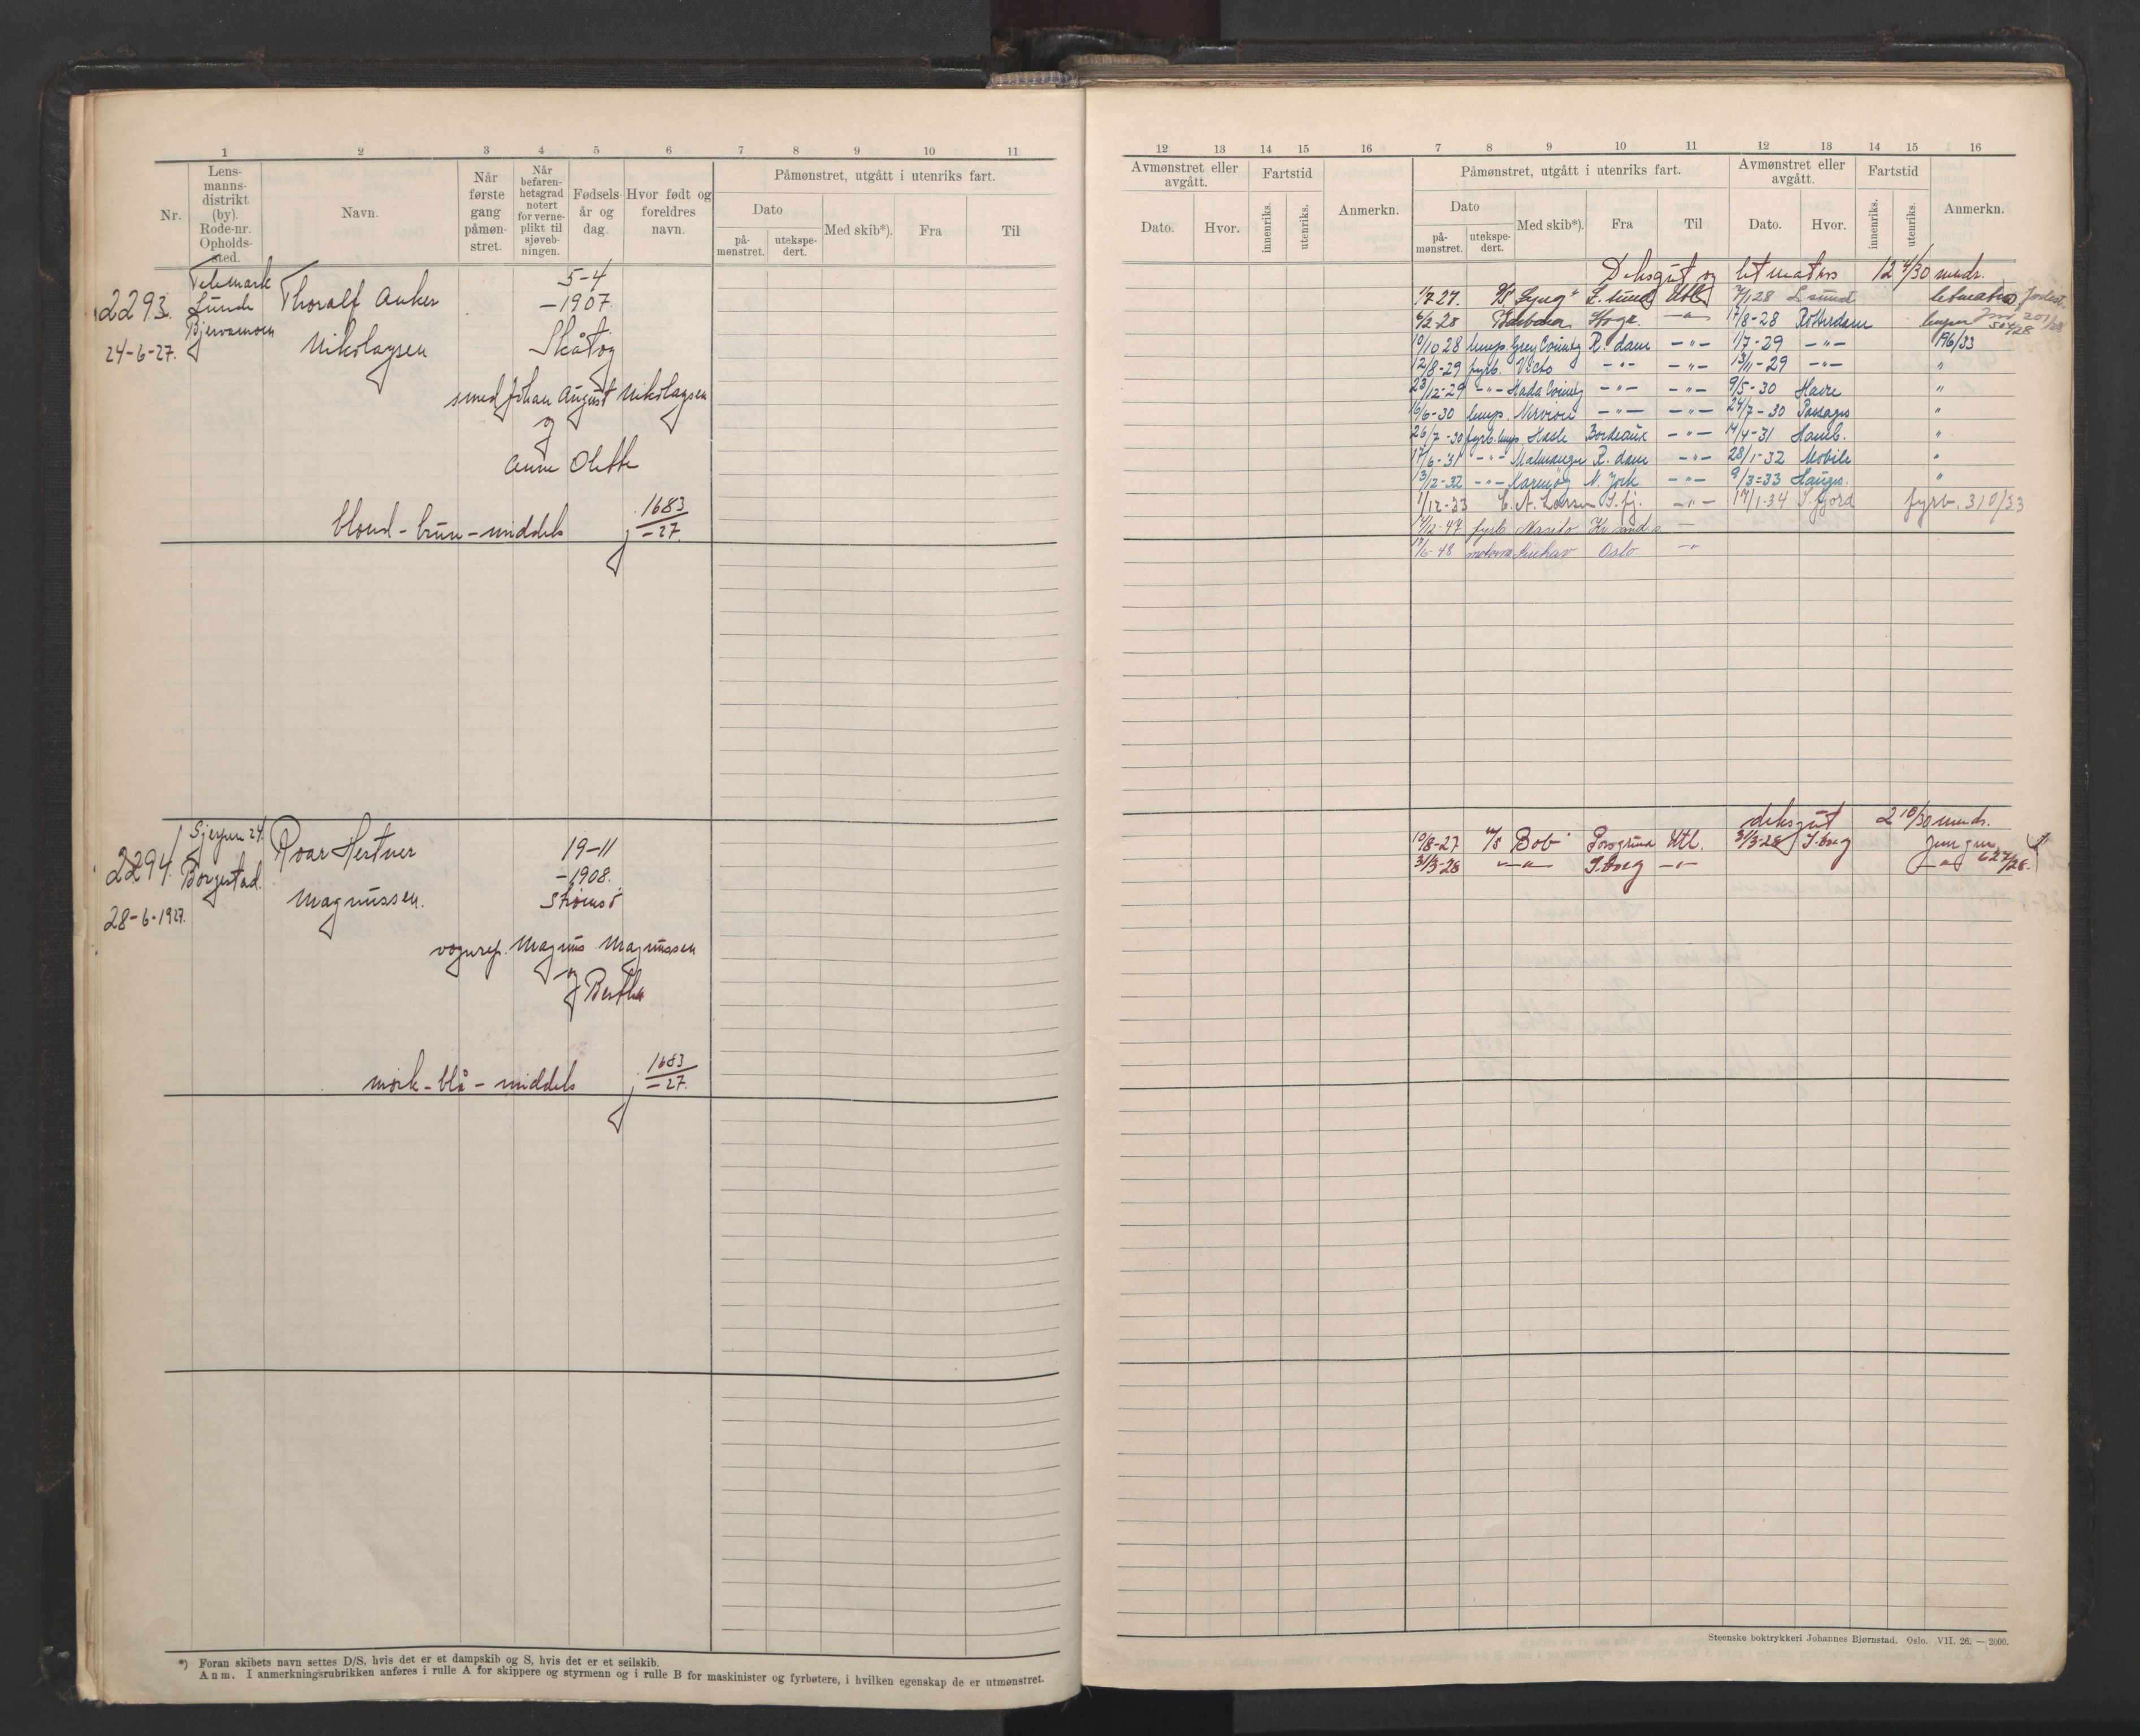 1 2 3 4 5 6 7 8 9 10 11
Nr.
Lens-
manns-
distrikt
(by).
Rode-nr.
Opholds-
sted.
Navn.
Når
første
gang
påmøn-
stret.
Når
befaren-
hetsgrad
notert
for verne-
plikt til
sjøveb-
ningen.
Fødsels-
år og
dag.
Hvor født og
foreldres
navn.
Påmønstret, utgått i utenriks fart.
Dato
på-
mønstret.
utekspe-
dert.
Med skib*).
Fra
Til
2293
24-6-27.
Telemark
Lunde
Thoralf Anker
Nikolaysen
5-4
-1907
Skåtøy
smed Johan August Nikolaysen
og
Anne Olette
blond - brun - middels
j. 1683
-27.
2294
28-6-1927.
Gjerpen 24.
Borgestad.
Roar Hertner
Magnussen.
19-11
-1908.
Strømsø
vognrep. Magnus Magnussen
og Bertha
mørk - blå - middels
j. 1683
-27.
*) Foran skibets navn settes D/S, hvis det er et dampskib og S, hvis det er et seilskib.
Anm. I anmerkningsrubrikken anføres i rulle A for skippere og styrmenn og i rulle B for maskinister og fyrbøtere, i hvilken egenskap de er utmønstret.
12 13 14 15 16 7 8 9 10 11 12 13 14 15 16
Avmønstret eller
avgått.
Dato.
Hvor.
Fartstid
innenriks.
utenriks.
Anmerkn.
Påmønstret, utgått i utenriks fart.
Dato
på-
mønstret.
utekspe-
dert.
Med skib*).
Fra
Til
Avmønstret eller
avgått.
Dato.
Hvor.
Fartstid
innenriks.
utenriks.
Anmerkn.
Deksgut og letmatros 12 4/30 mndr.
1/7 27. L.sund Utl. 28 L.sund letmatros
6/2-28 -"- 17/8-28 Rotterdam
10/10 28 lemp. Grey County R.dam -"- 1/7-29 -"- 196/33
12/8-29 fyrb. Victo -"- -"- 13/11-29 -"- "
23/12-29 -"- Hada County -"- -"- 9/5-30 Havre "
16/6-30 lemp. -"- -"- 24/7-30 Passages "
26/7-30 fyrb. lemp. Hasle Bordeaux -"- 14/4-31 Hamb. "
17/6-31 -"- Malmanger R.dam -"- 28/1-32 Mobile "
13/12-32 -"- N. York -"- 9/3-33 Hauges. "
1/12-33 C. A. Larsen S.fj. -"- 17/1-34 S.fjord fyrb. 310/33
12-47 fyrb
6-48 Oslo -"-
deksgut 2 10/30 mndr.
10/8-27 M/S Bob Porsgrund Utl. 31/3-28 S.borg Jungm
31/3-28 -"- S.borg -"- -"- 627/28.
Steenske boktrykkeri Johannes Bjørnstad. Oslo. VII. 26. — 2000.